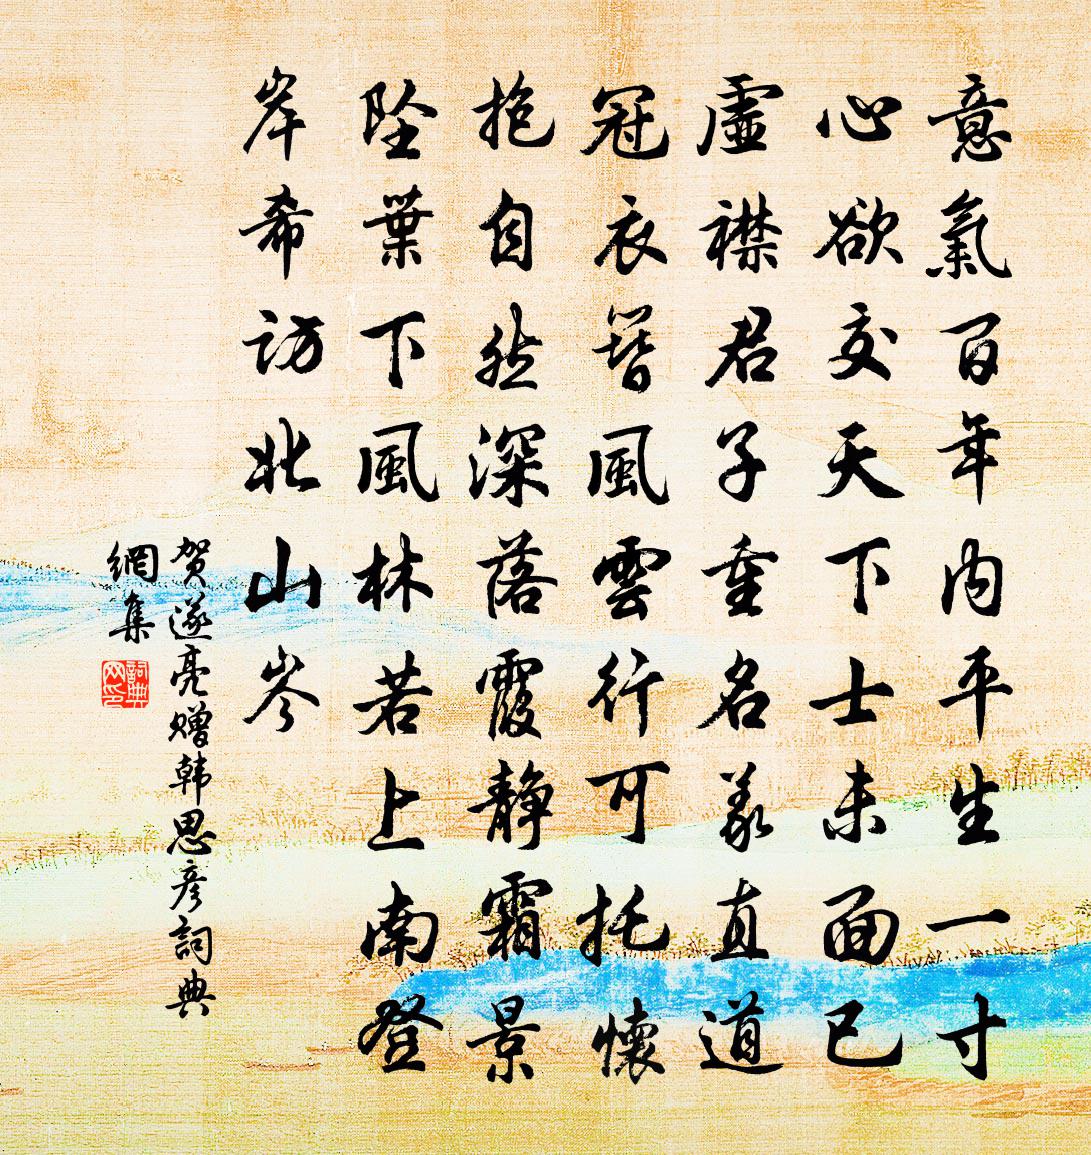 意氣百年內平生一寸
心欲交天下士未面已
虛襟君子重名義直道
冠衣簪風雲行可托懷
抱自然深落霞靜霜景
墜葉下風林若上南登
岸希訪北山岑
贺遂亮赠韩思彦詞典
網集
詞典